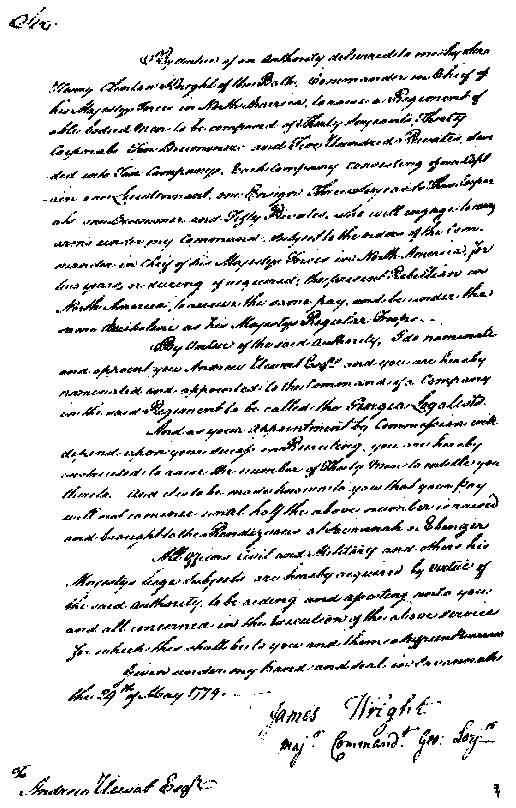 Sir
By virtue of an authority delivered to me by Sir
Henry Clinton Knight of the Bath, Commander in Chief of
his Majestys Forces in North America, to raise a Regiment of
able bodied Men to be composed of Thirty Serjeants, Thirty
Corporals Ten Drummers and Five Hundred Privates, divi
ded into Ten Companys, Each Company consisting of one Capt
ain one Lieutennant, one Ensign Three Serjeants Three Corpor
als one Drummer and Fifty Privates, who will engage to carry
arms under my Command, subject to the orders of the Com
mander in Chief of his Majestys Forces in North America, for
two years, or during if required, the present Rebellion in
North America, to receive the same pay, and be under the
same discipline as his Majestys Regular Troops
By Virtue of the said authority, I do nominate
and appoint you Andrew Esqr. and you are hereby
nominated and appointed to the Command of a Company
in the said Regiment to be called the Georgia Loyalists
And as your appointment by Commission will
depend upon your success in Recruiting, you are hereby
instructed to raise the number of Thirty Men to entitle you
thereto. And it is to be made known to you that your Pay
will not commence until half the above number is raised
and brought to the Rendezvous at Savannah or Ebenezer
All Officers Civil and Military and others his
Majestys Liege Subjects are hereby required by virtue of
the said authority, to be aiding and assisting unto you
and all concerned in the Execution of the above service
for which this shall be to you and them a sufficient Warrant
Given under my hand and seal in Savannah
the 29th of May 1779.
James Wright
Majr. Commandt. Geo: Loyts
To
Andrew Esqr